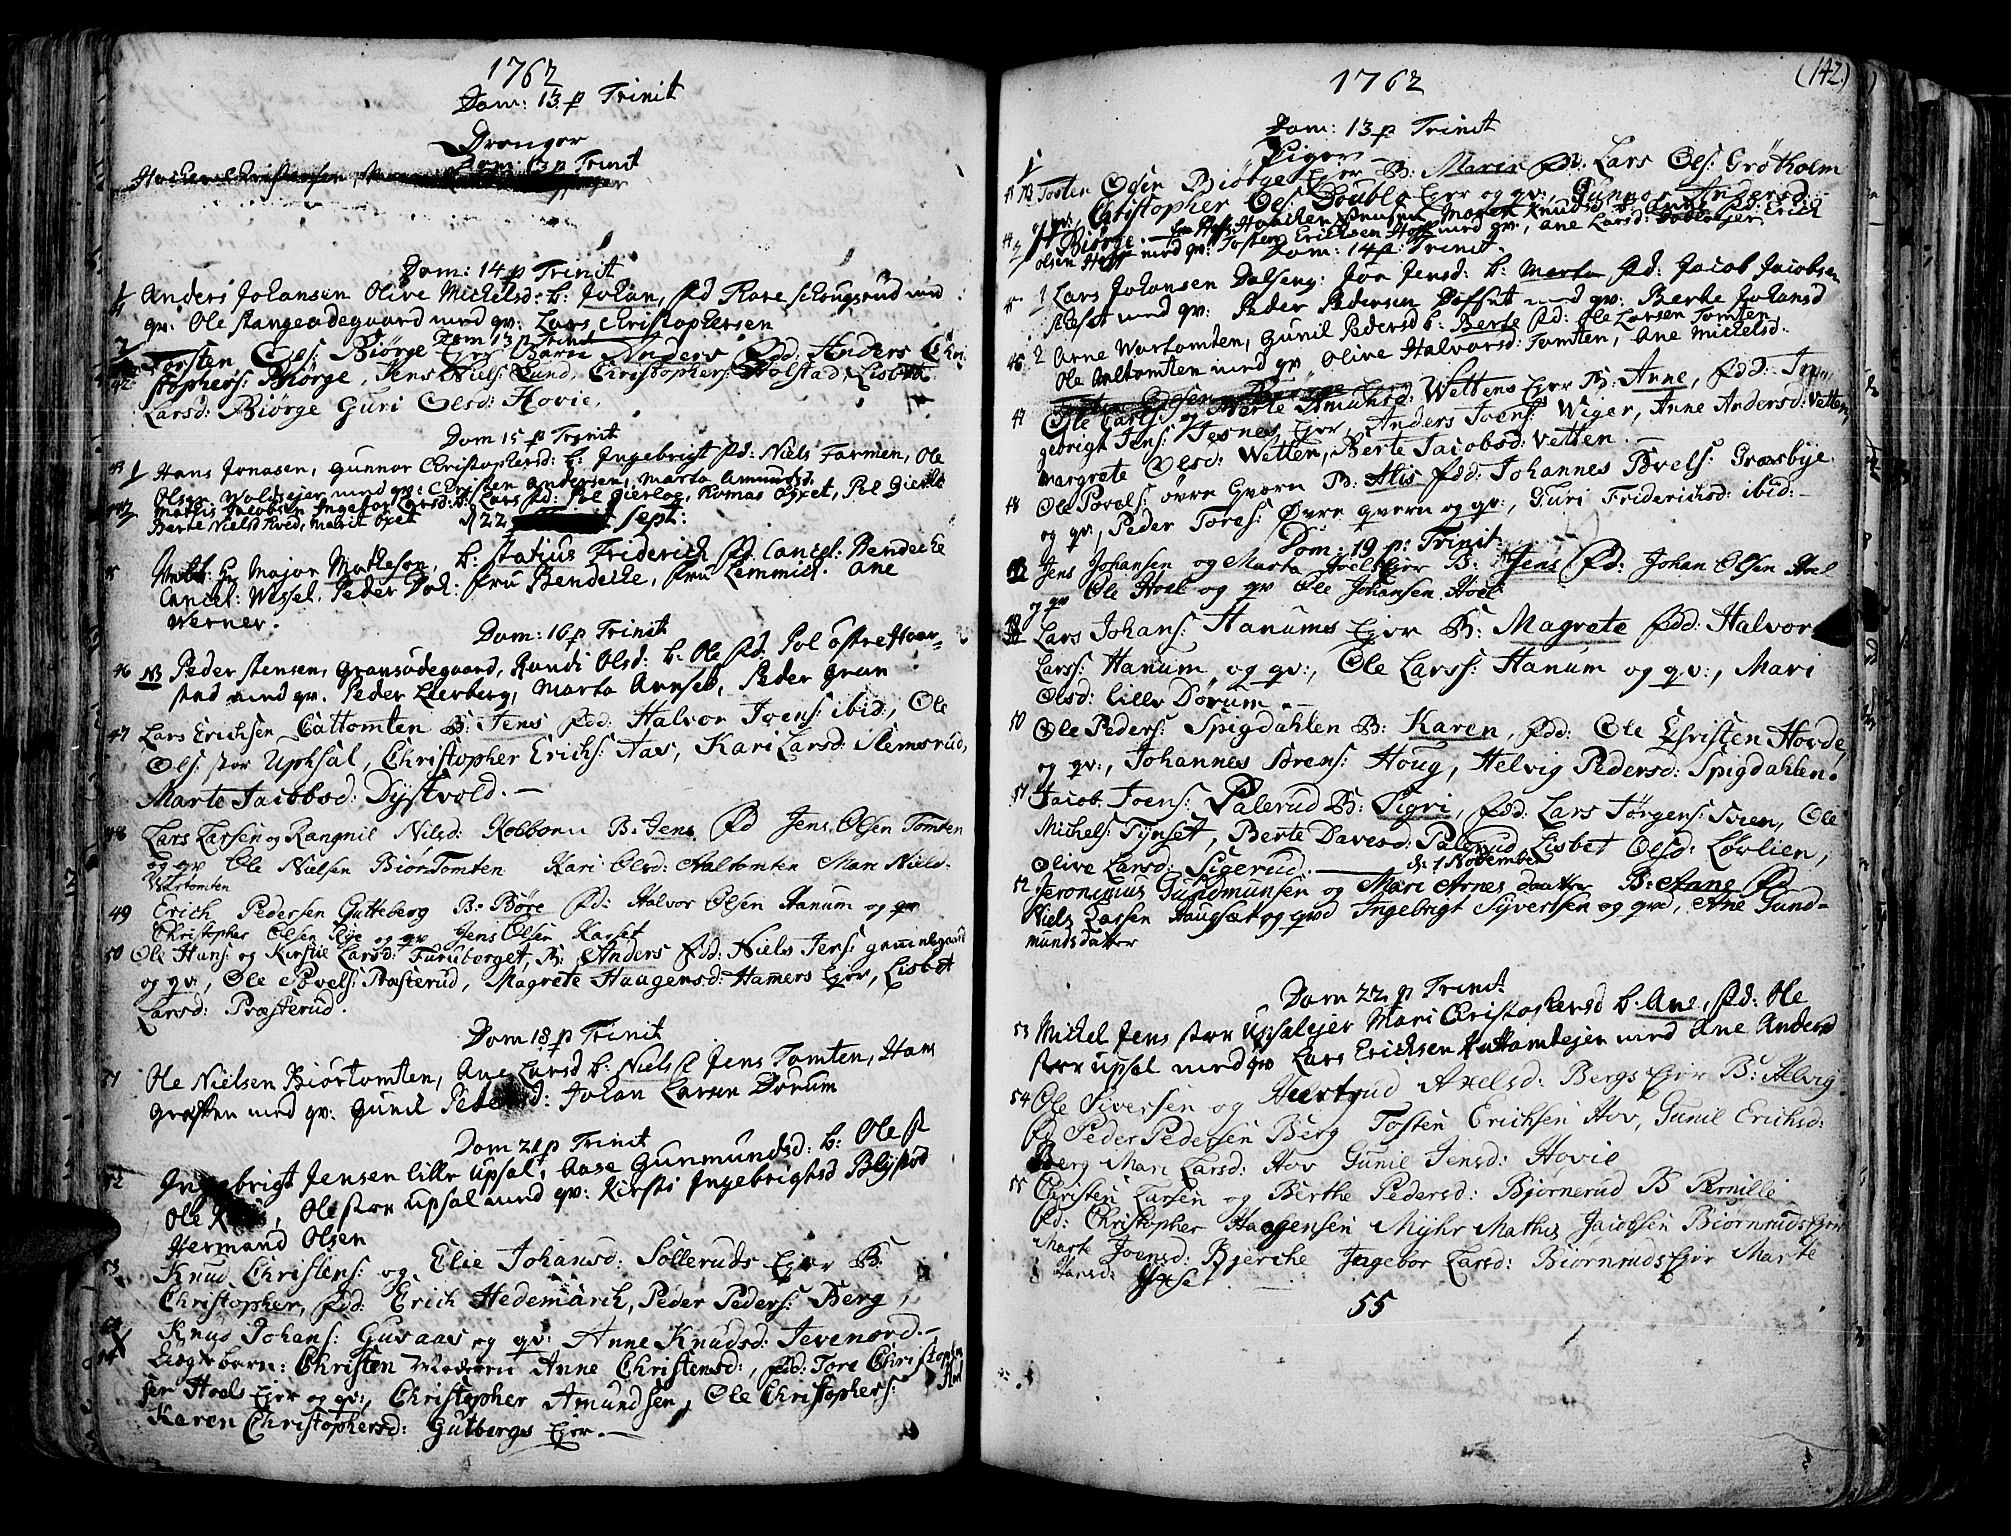 1762
Dom: 13 p Trinit
Drenger
Dom: 13 p Trinit
Dom: 14 p Trinit
Anders Johansen Olive Michelsd: b: Johan, fd
qv: Ole Stangeødegaard med qv: Lars Christophersen
Dom 13 p Trinit
Torsten Ols: Biørge Ejer Barn Anders fdd: Anders Chri
stophers: Biørge, Jens Niels: Lund, Christophers: Holstad, Lisbet
Larsd: Biørge Guri Olsd: Hovie.
Dom 15 p Trinit
43 Hans Jonasen, Gunnor Christophersd: b: Ingebrigt fd: Niels Farmen, Ole
Olsen Woldsejer med qv: Christen Andersen, Marta Amundsd.
Mathis Jacobsen Ingebor Larsd: b: Lars fd:
Berte Nielsd Hvid, Marit Oxet
d 22 Sept:
Hr Major Matheson, b: Statius Friderich fd. Cancel: Bendeche
Cancel: Wessel. Peder Dok: fru Bendeche, fru Lemmich. Ane
Werner.
Dom: 16 p Trinit
46 NB Peder Stensen, Gransødegaard, Randi Olsd: b: Ole fd. Pol østre Hoer-
stad med qv. Peder Ellerberg, Marta Arnset, Peder Gran
47 Lars Erichsen Cattomten B: Jens fdd: Halvor Joens: ibid:, Ole
Ols: stor Uphsal, Christopher Erichs: Aas, Kari Larsd: Slemsrud,
Marte Jacobsd: Dystvold. -
48 Lars Larsen og Rangnil Nilsd: Kolbonn B: Jens fd Jens Olsen Tomten
og qv Ole Nielsen BiørTomten Kari Olsd: Haltomten Mari Nield-
Wartomten
49 Erich Pedersen Gutteberg B: Børe fd: Halvor Olsen Hanum og qv
Christopher Olsen Rye og qv Jens Olsen Karset
50 Ole Hans: og Kirstie Larsd: Furuberget, B: Anders fdd: Niels Jens:
og qv:, Ole Povels: Præsterud, Magrete Haagensd: Hamers Ejer, Lisbet
Larsd: Præsterud.
Dom 18 p Trinit
51 Ole Nielsen Biørtomten, Ane Larsd b: Niels f Jens Tomten, Hans
Græften med qv: Gunil Pedersd: Johan Larsen Dørum
Dom 21 p Trinit
52 Ingebrigt Jensen lille Upsal, Aase Gunmundsd: b: Ole f
Ole, Ole stor Upsal med qv: Kirsti Ingebrightsd Blystad
Hermand Olsen
53 Knud Christens: og Elie Johansd: Solleruds Ejer B:
Christopher, fdd: Erich Hedemarch, Peder Peders: Berg,
Knud Johans: Gusaas og qv: Anne Knudsd: Jevenord. -
54 Uegte barn: Christen Moderen Anne Christensd:, fdd: Tore Christophe
sen Hoels Ejer og qv:, Christopher Amundsen, Ole Christophers:
Karen Christophersd: Gutbergs Ejer. -
(142)
1762
Dom: 13 p Trinit
Piger
Tosten Olsen Biørge Ejer B: Marie fd. Lars Ols: Grøtholm
og qv: Christopher Ols: Doubla Ejer og qv:, Gunnor Andersd:
Biørge. -
olsen Hoff med qv: Tosten Erichsen Hoff med qv:, Ane Larsd:
Dom: 14 p: Trinit.
45 1 Lars Johansen Dalseng, Joa Jensd: b: Marta fd: Jacob Jacobsen
med qv: Peder Pedersen Dofset med qv: Berte Johansd
46 2 Arne Wartomten, Gunil Pedersd b: Berte fd: Ole Larsen Tomten,
Ole Aaltomten med qv Olive Halvorsd: Tomten, Ane Michelsd:
47 Ole Carls: og Berte Amundsd: Wettens Ejer B: Anne, fdd: In-
gebrigt Jens: Jesnes Ejer, Anders Joens: Wiger, Anne Andersd: Vetten,
Margrete Olsd: Wetten, Berte Jacobsd: Vetten. -
48 Ole Povels: øvre Gvern B: Alis fdd: Johannes Povels: Græsbye
og qv:, Peder Tores: Øvre qvern og qv:, Guri Friderichsd: ibid: -
Dom: 19 p: Trinit:
Jens Johansen og Marta Hoels Ejer B: Jens fd: Johan Olsen Hoel
og qv Ole Hoel og qv Ole Johansen Hoel
Lars Johans: Hanums Ejer B: Magrete fdd: Halvor
Larss: Hanum og qv:, Ole Larss: Hanum og qv:, Mari
Olsd: lille Dørum. -
50 Ole Peders: Spigdahlen B: Karen, fdd: Ole Christen Hovde,
og qv:, Johannes Sørens: Houg, Helvig Pedersd: Spigdahlen.
51 Jacob Joens: Palerud B: Sigri, fdd: Lars Jørgens: Svien, Ole
Michels: Tynset, Berte Davesd: Palerud Lisbet Olsd: Løvlien,
Olive Larsd: Sigerud. -
d: 1 November
52 Jeronimus Gundmunsen og Mari Arnes daatter B: Anne fd
Niels Larsen Haugsæt og qvd Ingebrigt Syversen og qvd, Ane Gund-
munds datter
Dom 22 p Trinit
53 Michel Jens stor Upsalejer Mari Christophersd b. Ane, fd: Ole
stor upsal med qv Lars Erichsen Kattomtejer med Ane Andersd
54 Ole Siversen og Heertrud Axelsd: Bergs Ejer B: Helvig
fd Peder Pedersen Berg Tosten Erichsen Hov, Gunil Erichsd:
Berg Mari Larsd: Hov Gunil Jensd: Hovie
55 Christen Larsen og Berthe Pedersd: Bjørnerud B Pernille
fd: Christopher Haagensen Myhr Mathis Jacobsen Biørnruds Ejer
Marte Joensd: Bjerche Jngebor Larsd: Biørnruds Ejer Marte
Hansd:
55